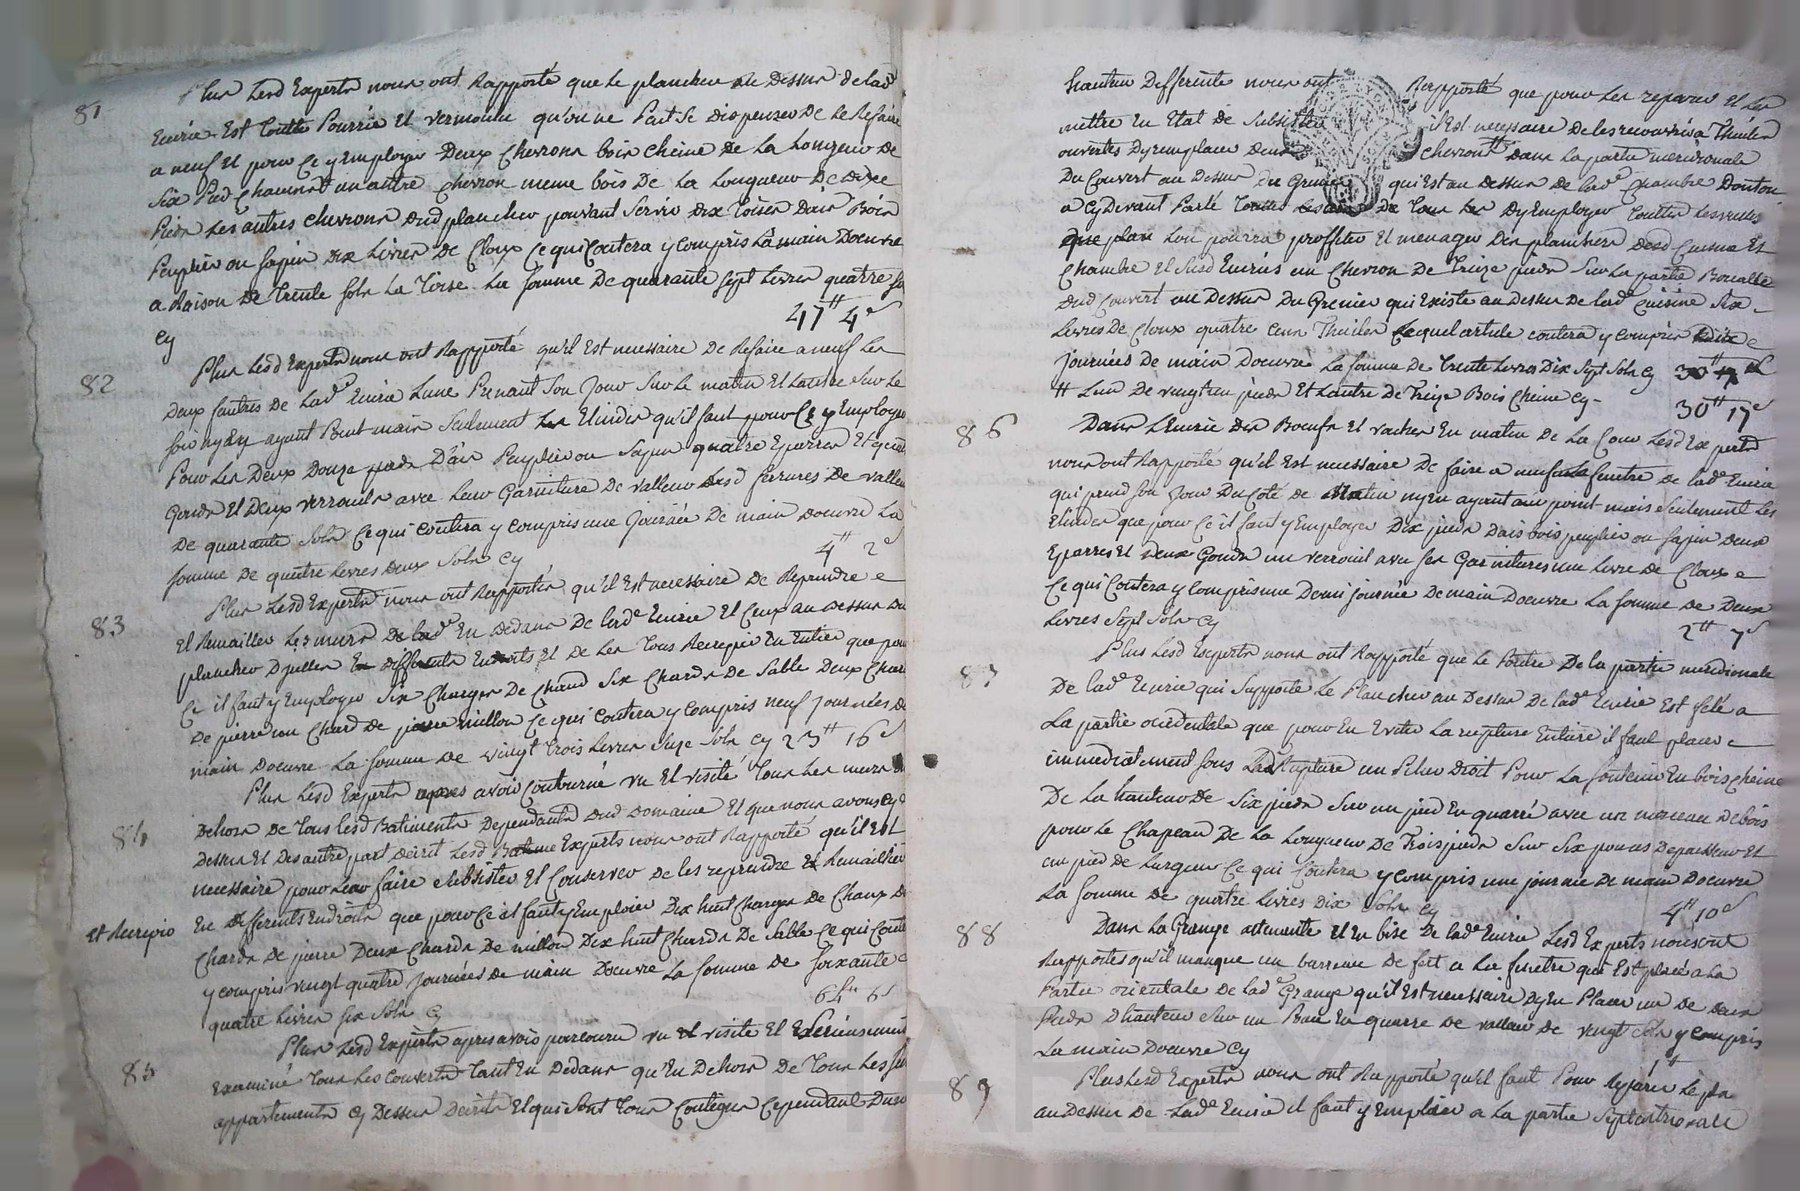 81 Plus Lesd Experts nous ont Rapporté que Le plancher au Dessus de lad
Ecurie Est toutte Pourrie Et vermoulue qu'on ne Peut se Dispenser De Le Refaire
a neuf Et pour Ce y Employer Deux Chevrons bois cheine De La Longueur De
Six Pied Chacun Et un autre chevron meme bois De La Longueur De Dixe
Pieds Les autres chevrons dud plancher pouvant Servir Dix toises Dais Bois
Peuplier ou sapin Dix Livres De Cloux Ce qui Coutera y Compris La main Doeuvre
a Raison De trente sols La toise La somme De quarante sept Livres quatre so
Cy 47# 4s
82 Plus Lesd Experts nous ont Rapporté qu'il Est necessaire De Refaire a neuf Les
Deux fautres de Lad. Ecurie Lune Prenant Son Jour Sur Le matin Et Lautre Sur Le
Soir ny En ayant Point mais Seulement Les Elindes qu'il faut pour Ce y Employer
Pour Les Deux Douze pieds D'ais Peuplier ou Sapin quatre Eparres Et quatre
Gonds Et Deux verrouils avec Leur Garniture De valleur Lesd ferrures De valleu
De quarante Sols Ce qui Coutera y Compris une Journée De main Doeuvre La
somme De quatre Livres Deux Sols Cy 4# 2s
83 Plus Lesd Experts nous ont Rapportés qu'il Est necessaire De Reprendre e
Et Remailler Les murs De Lad. En Dedans De Lad. Ecurie Et Ceux au Dessus Du
plancher D'yceller En differents Endroits Et De Les tous Recrepir En Entier que pour
Ce il faut y Employer Six Charges De Chaud Six Chards De Sable Deux Chards
De pierre un Chard De pierre millon Ce qui Coutera y Compris neuf Journées De
main Doeuvre La somme De vingt trois Livres Seze Sols Cy 23# 16s
84 Plus Lesd Experts apres avoir Contourné vu Et visité tous Les murs En
Dehors De tous Lesd Batiments Dependants Dud Domaine Et que nous avons Cy
Dessus Et Des autre part Décrit Lesd Experts nous ont Rapporté qu'il Est
necessaire pour Les faire Subsister Et Conserver De les reprendre Et Remailler
Et Recrepir En Differents Endroits que pour Ce il faut y Emploier Dix huit Charges De Chaux Dix
Chards De pierre Deux Chards De millon Dix huit Chards De Sable Ce qui Coute
y Compris vingt quatre Journées De main Doeuvre La somme De Soixante e
quatre Livres six Sols Cy 64# 6s
85 Plus Lesd Experts apres avoir parcouru vu Et visite Et Serieusement
Examiné tous Les Couverts tant En Dedans qu'En Dehors De tous Les sus
appartements Cy Dessus Décrits Et qui Sont tous Contigus Cependant Dune
hauteur Differente nous ont Rapporté que pour Les reparer Et Les
mettre En Etat De Subsister il Est necessaire De les recouvrir a Thuiles
ouvertes D'y remplacer Deux Chevront dans La partie meridionale
Du Couvert au Dessus Du Grenier qui Est au Dessus De lad. Chambre Donton
a Cy Devant Parlé De tous Les D'y Employer toutter Lesvieux
plan Lon pourra proffiter Et menager Des planchers Desd Cuisine Et
Chambre Et Susd Ecuries un Chevron De treize pieds Sur La partie Boealle
Dud Couvert au Dessus Du Grenier qui Existe au Dessus De lad. Cuisine Six
Livres De Cloux quatre Cens Thuiles Lequel article Coutera y Compris Dix e
Journées De main Doeuvre La somme De trente Livres Dix Sept Sols Cy
# Lun De vingt un pieds Et Lautre De Treize Bois Cheine Cy- 30# 17s
86 Dans LEcurie Des Boeufs Et vaches En matin De La Cour Lesd Experts
nous ont Rapporté qu'il Est necessaire De faire a neuf La fenetre De lad. Ecurie
qui prend Son Jour Du Coté De Matin ny En ayant aux point mais Seulement Les
Elindes que pour Ce il faut y Employer Dix pieds Dais bois peuplier ou Sapin Deux
Eparres Et Deux Gonds un verrouil avec Ses Garnitures une Livre De Cloux e
Ce qui Coutera y Compris une Demi Journée De main Doeuvre La somme De Deux
Livres Sept Sols Cy 2# 7s
87 Plus Lesd Experts nous ont Rapporté que Le Poutre De La partie meridionale
De lad. Ecurie qui Supporte Le Plancher au Dessus De lad. Ecurie Est felé a
La partie occidentale que pour En Eviter La rupture Entiere il faut placer e
immediatement Sous Lad. Rupture un Pilier Droit Pour La Soutenir En bois Cheine
De La hauteur De Six pieds Sur un pied En quarré avec un morceau De bois
pour Le Chapeau De La Longueur De trois pieds Sur Six pouces D'epaisseur Et
un pied De Largeur Ce qui Coutera y Compris une journée De main Doeuvre
La somme De quatre Livres Dix Sols Cy 4# 10s
88 Dans La Grange attenante Et En bise De lad. Ecurie Lesd Experts nous ont
Rapportés qu'il manque un barreau De fert a La fenetre qui Est placée a La
Partie orientale De lad. Grange qu'il Est necessaire D'y En Placer un De deux
Pieds D'hauteur Sur un Pouce En quarre De valleur De vingt Sols y Compris
La main Doeuvre Cy 1#
89 Plus Lesd Experts nous ont Rapporté qu'il faut Pour Réparer Le pla
au Dessus De Lad. Ecurie il faut y Emploier a La partie Septentrionale